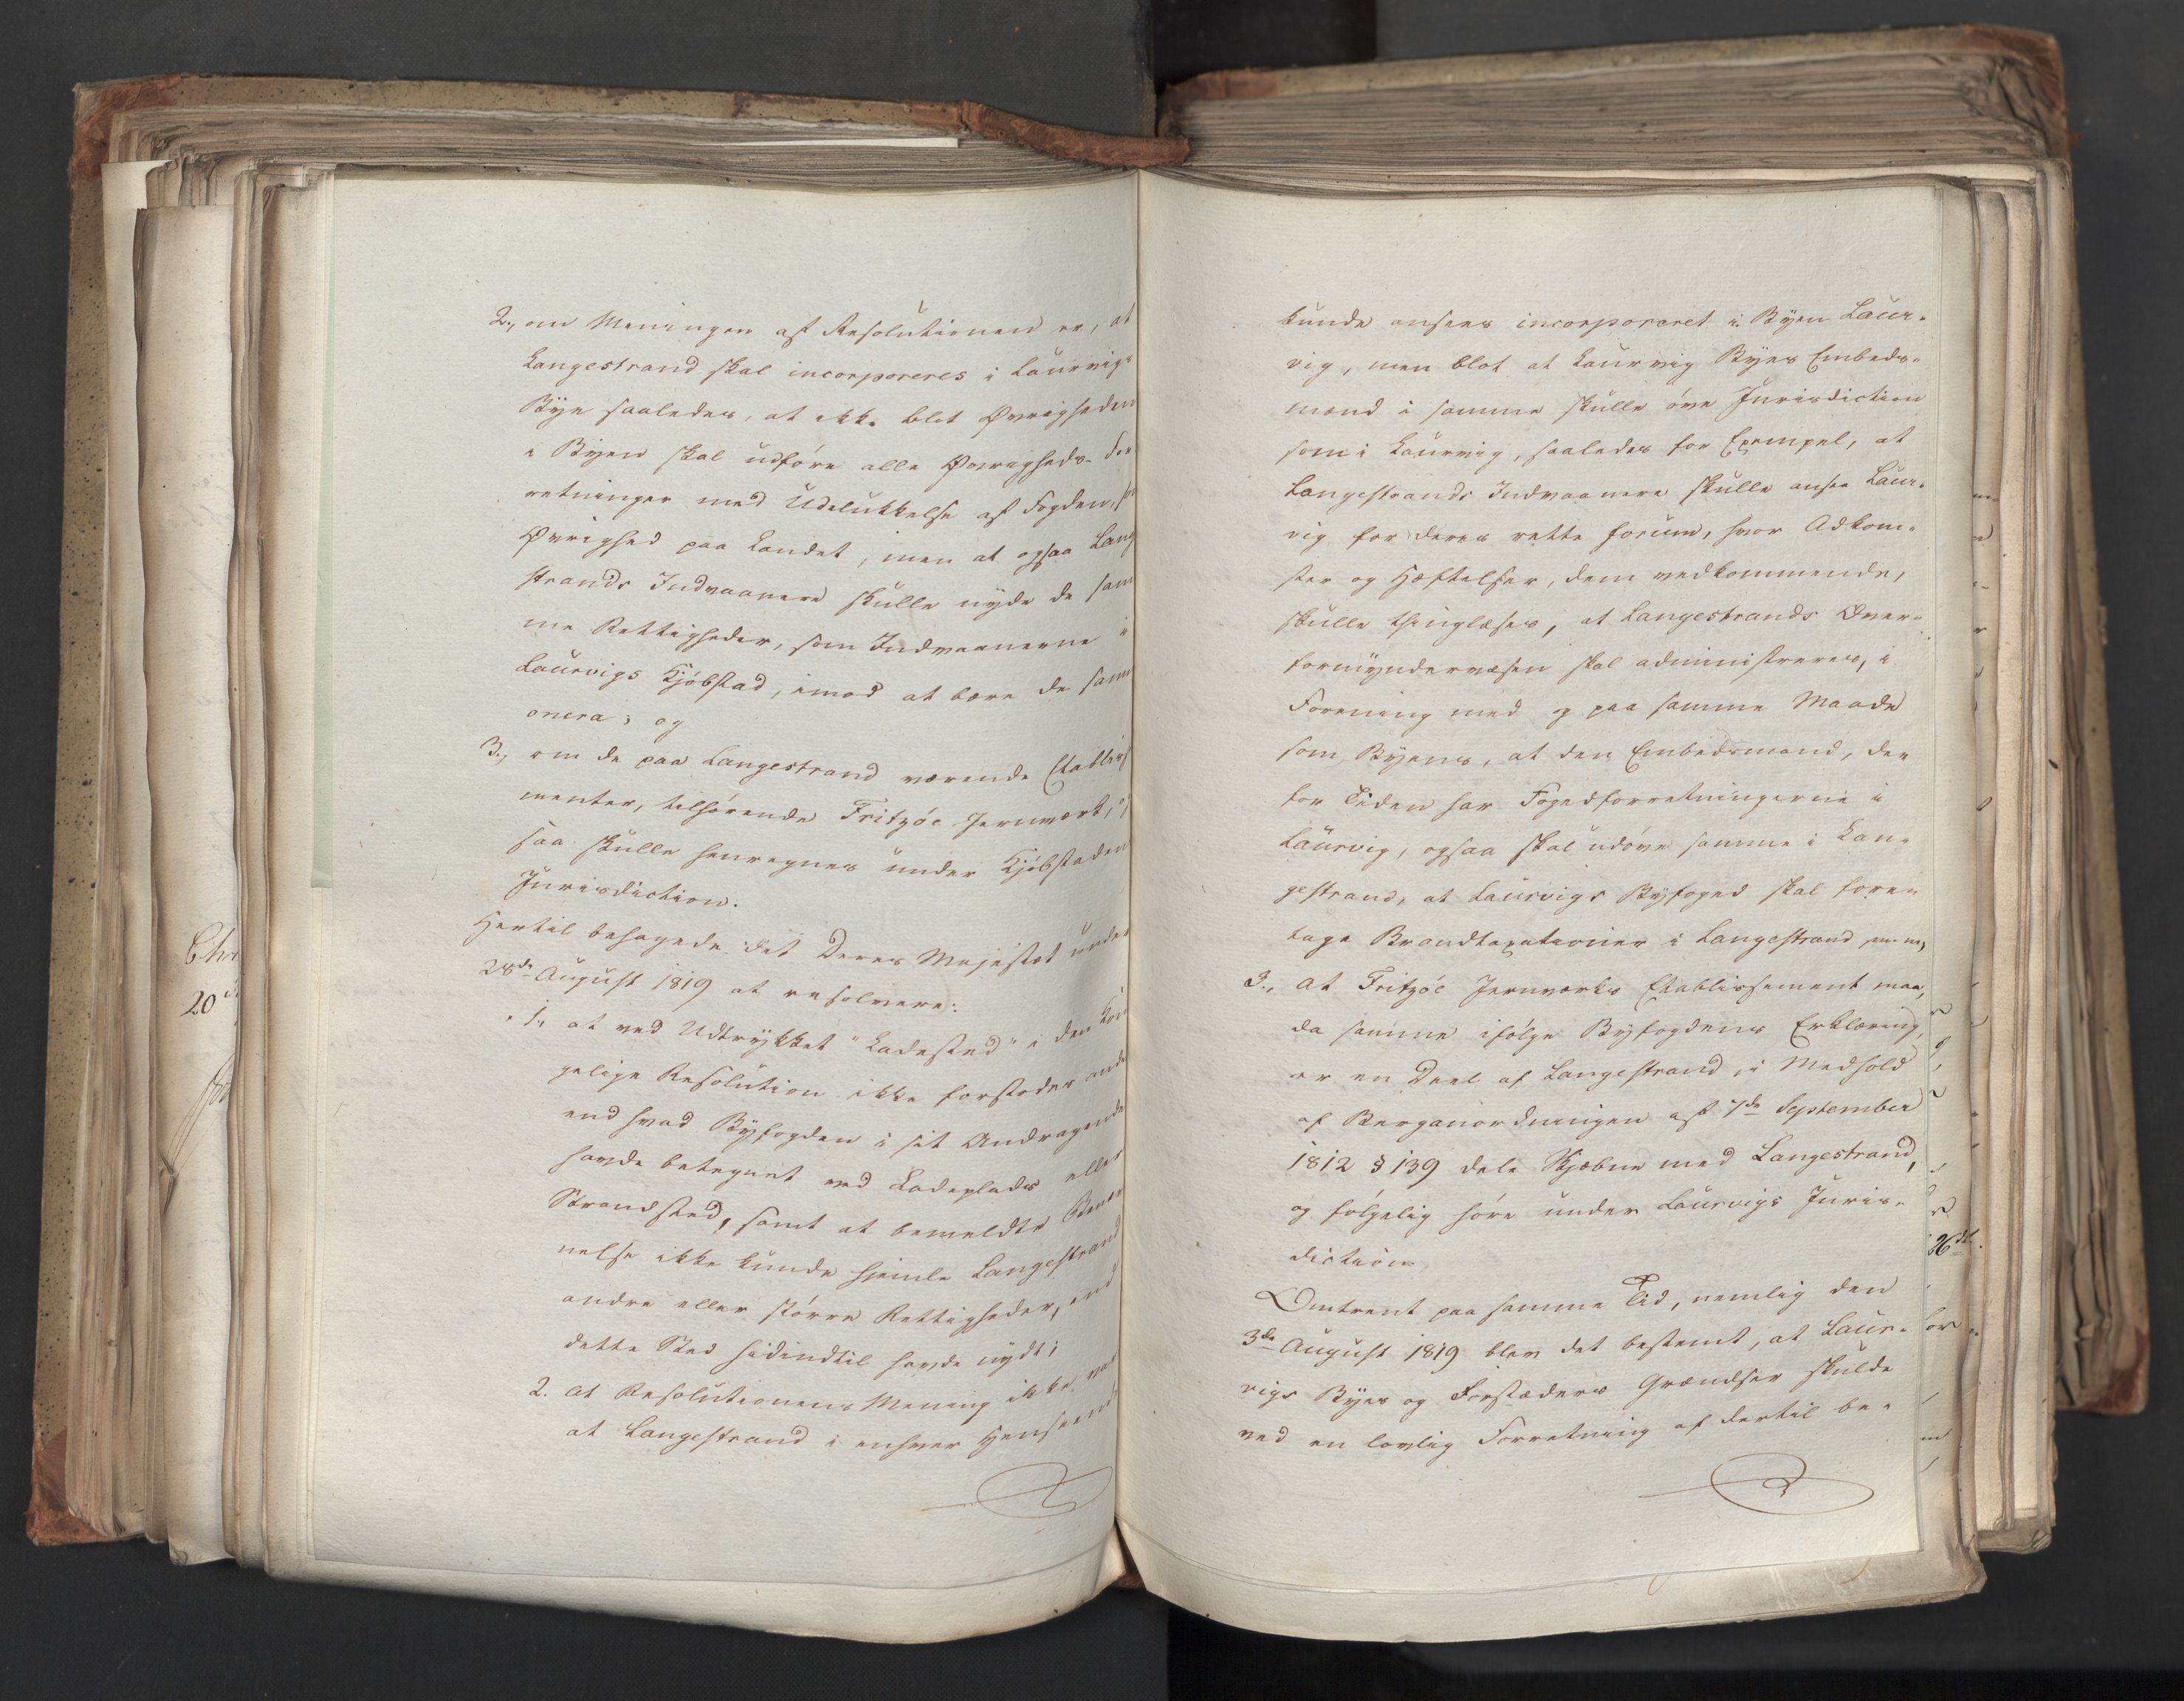 2., om Meningen af Resolutionen er, at
Langestrand skal incorporeres i Laurvigs
Bye saaledes, at ikke blot Øvrigheden
i Byen skal udføre alle Øvrigheds-For
retninger med Udelukkelse af Fogden, som
Øvrighed paa Landet, men at ogsaa Lang
strands Indvaanere skulle nyde de sam
me Rettigheder, som Indvaanerne i
Laurvigs Kjøbstad, imod at bære de samme
onera; og
3., om de paa Langestrand værende Etablis
menter, tilhørende Fritzöe Jernværk, og
saa skulle henregnes under Kjøbstadens
Jurisdiction.
Hertil behagede det Deres Majestæt under
28de August 1819 at resolvere:
1, at ved Udtrykket "Ladested" i den Kon
gelige Resolution ikke forstodes andet
end hvad Byfogden i sit Andragende
havde betegnet ved Ladeplads eller
Strandsted, samt at bemeldte Benæv
nelse ikke kunde hjemle Langestrand
andre eller større Rettigheder, end
dette Sted hidindtil havde nydt;
2. at Resolutionens Mening ikke var
at Langestrand i enhver Henseende
kunde ansees incorporeret i Byen Laur-
vig, men blot at Laurvig Byes Embeds-
mænd i samme skulle øve Jurisdiction
som i Laurvig, saaledes for Exempel, at
Langestrands Indvaanere skulle ansee Laur-
vig for deres rette forum, hvor Adkom-
ster og Hæftelser, dem vedkommende,
skulle thinglæses, at Langestrands Over-
formyndervæsen skal administreres, i
Forening med og paa samme Maade
som Byens, at den Embedsmand, der
for Tiden har Fogedforretningerne i
Laurvig, ogsaa skal udøve samme i Lan-
gestrand, at Laurvigs Byfoged skal fore-
tage Brandtaxationer i Langestrand m. m,
3., at Fritzöe Jernværks Etablissement maa,
da samme ifølge Byfogdens Erklæring,
er en Deel af Langestrand, i Medhold
af Berganordningen af 7de September
1812 § 139 dele Skjæbne med Langestrand,
og følgelig høre under Laurvigs Juris-
diction.
Omtrent paa samme Tid, nemlig den
3de August 1819 blev det bestemt, at Laur-
vigs Byes og Forstæders Grændser skulde
ved en lovlig Forretning af dertil be-
Chri
20
26de